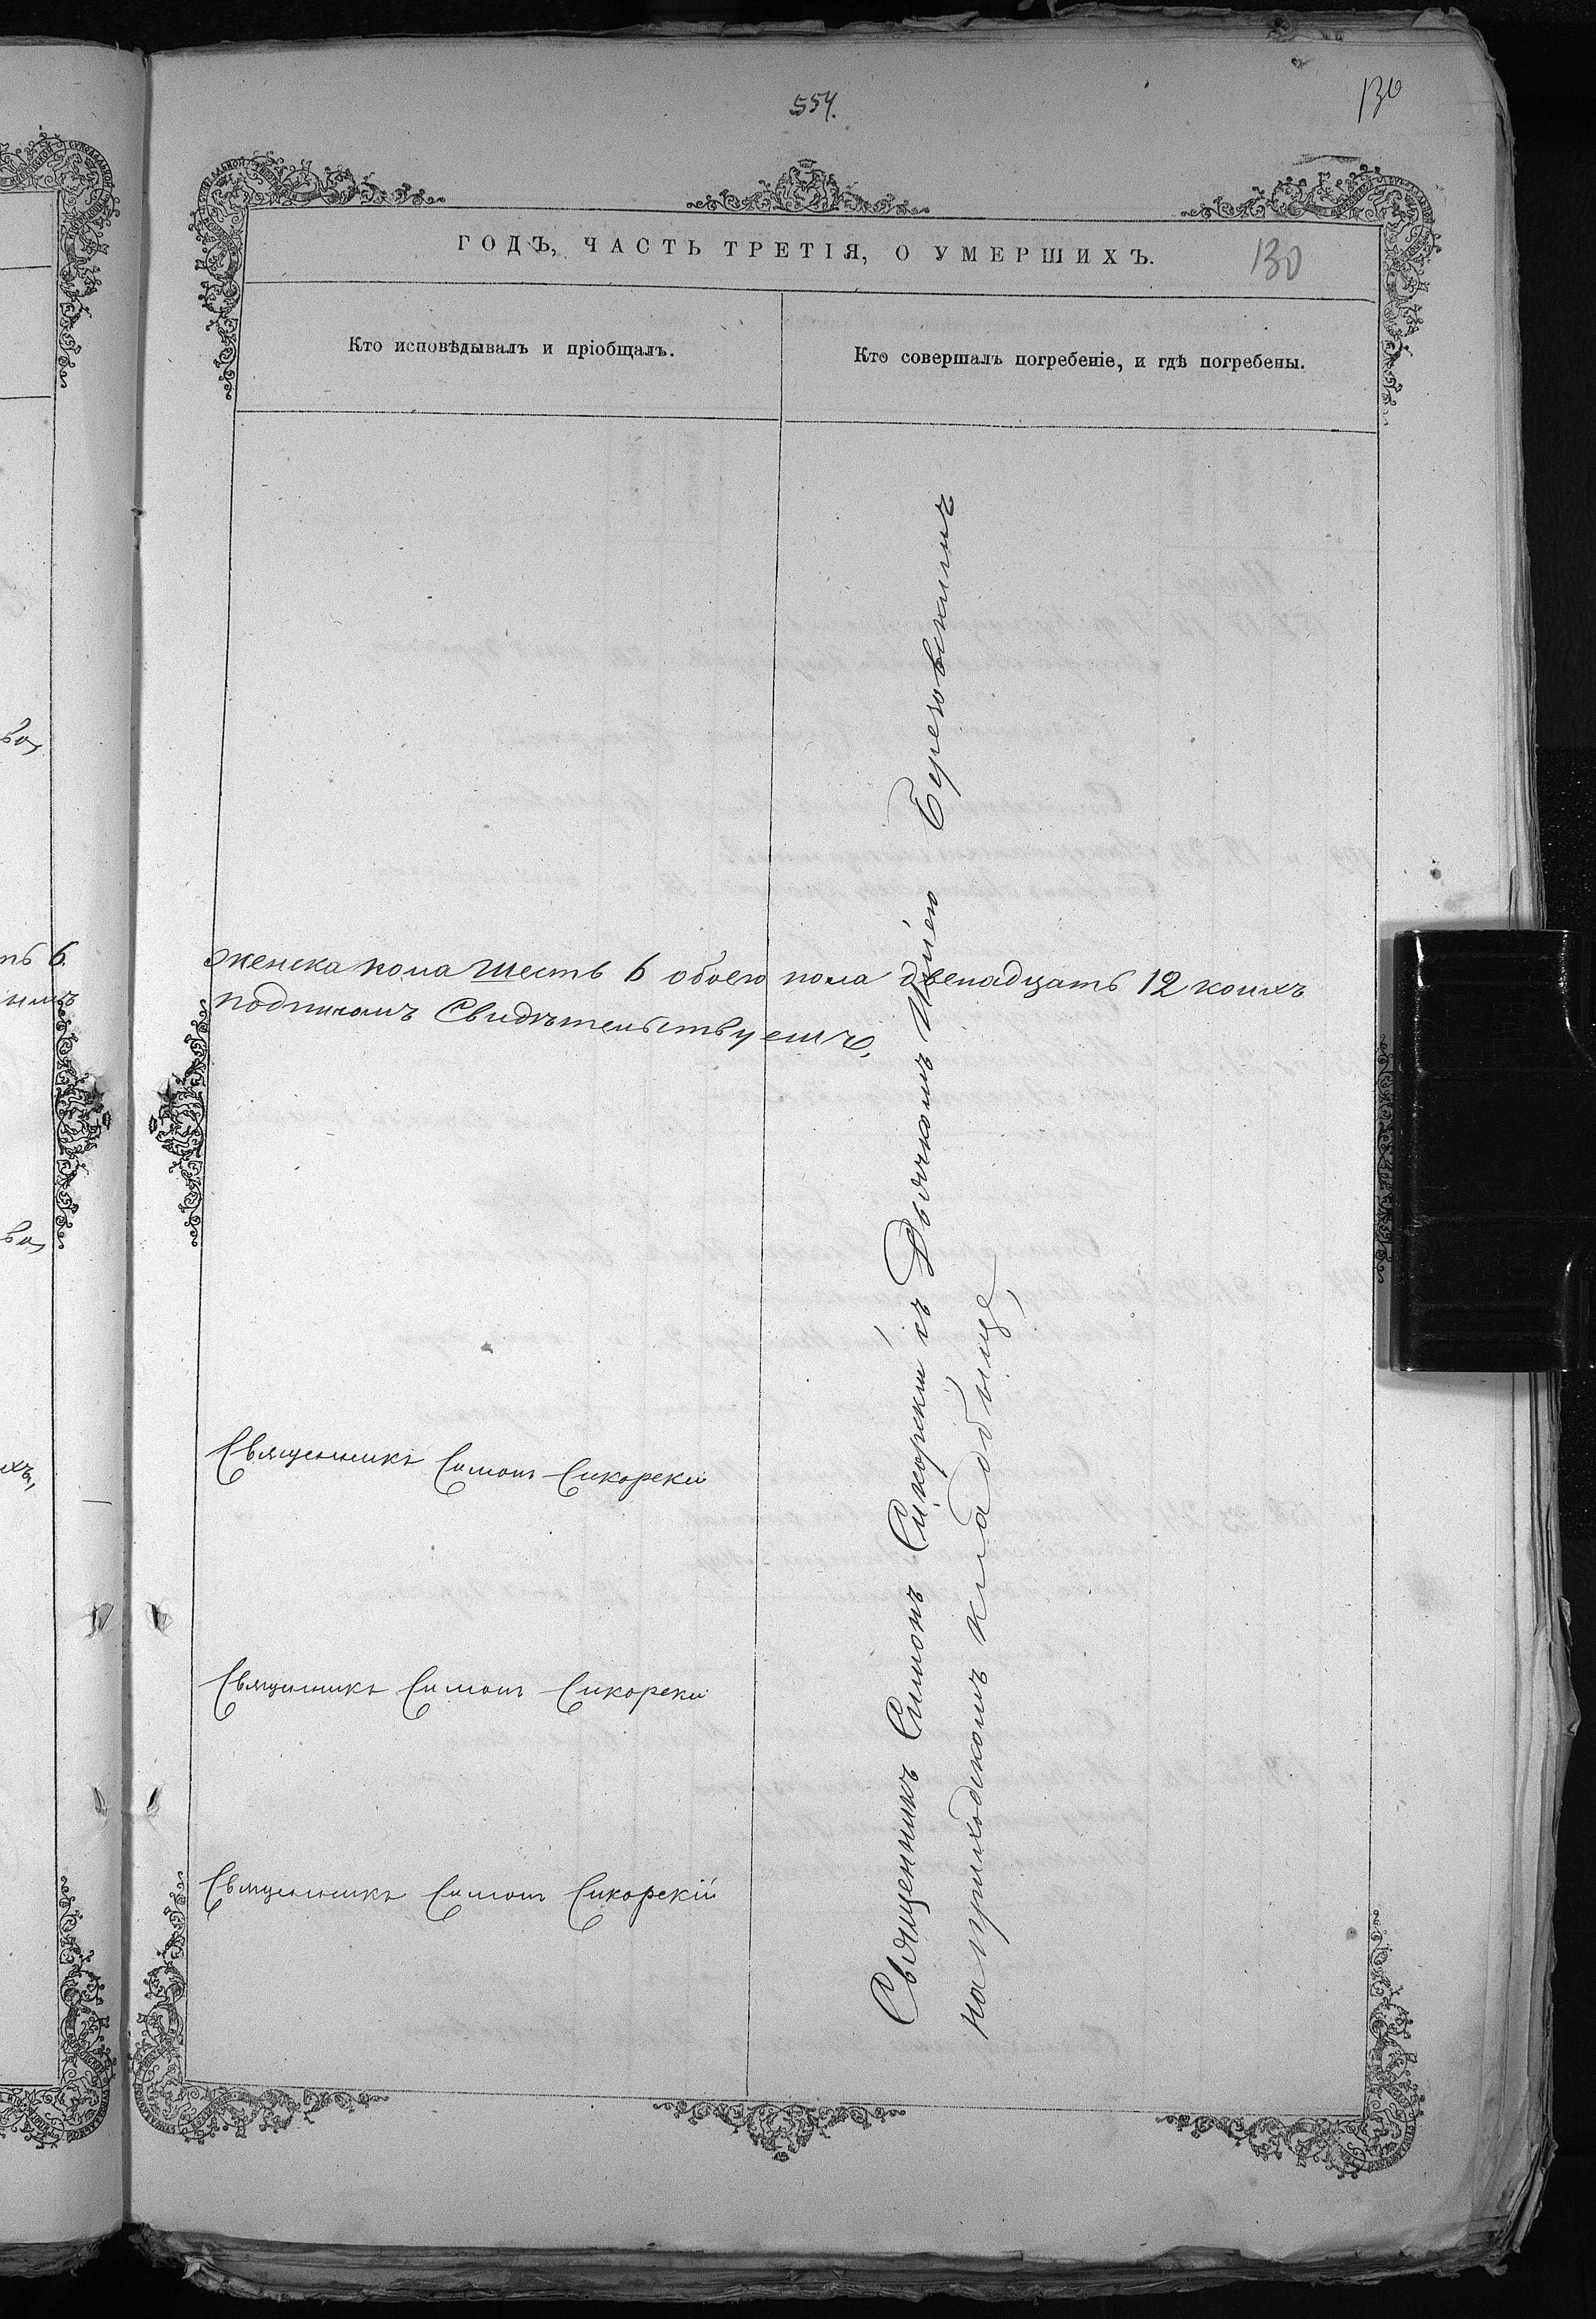 554.
130
ГОДЪ, ЧАСТЬ ТРЕТІЯ, О УМЕРШИХЪ.
130
Кто исповѣдывалъ и пріобщалъ.
Кто совершалъ погребеніе, и гдѣ погребены.
женска пола шесть 6 обоего пола двенадцать 12 коихъ
подписомъ Свидѣтельствуемъ.
Священникъ Симонъ Сикорский
Священникъ Симонъ Сикорски
Священникъ Симонъ Сикорскій
Священникъ Симонъ Сикорскій съ Дьячкомъ Березовскимъ
на приходскомъ кладбище